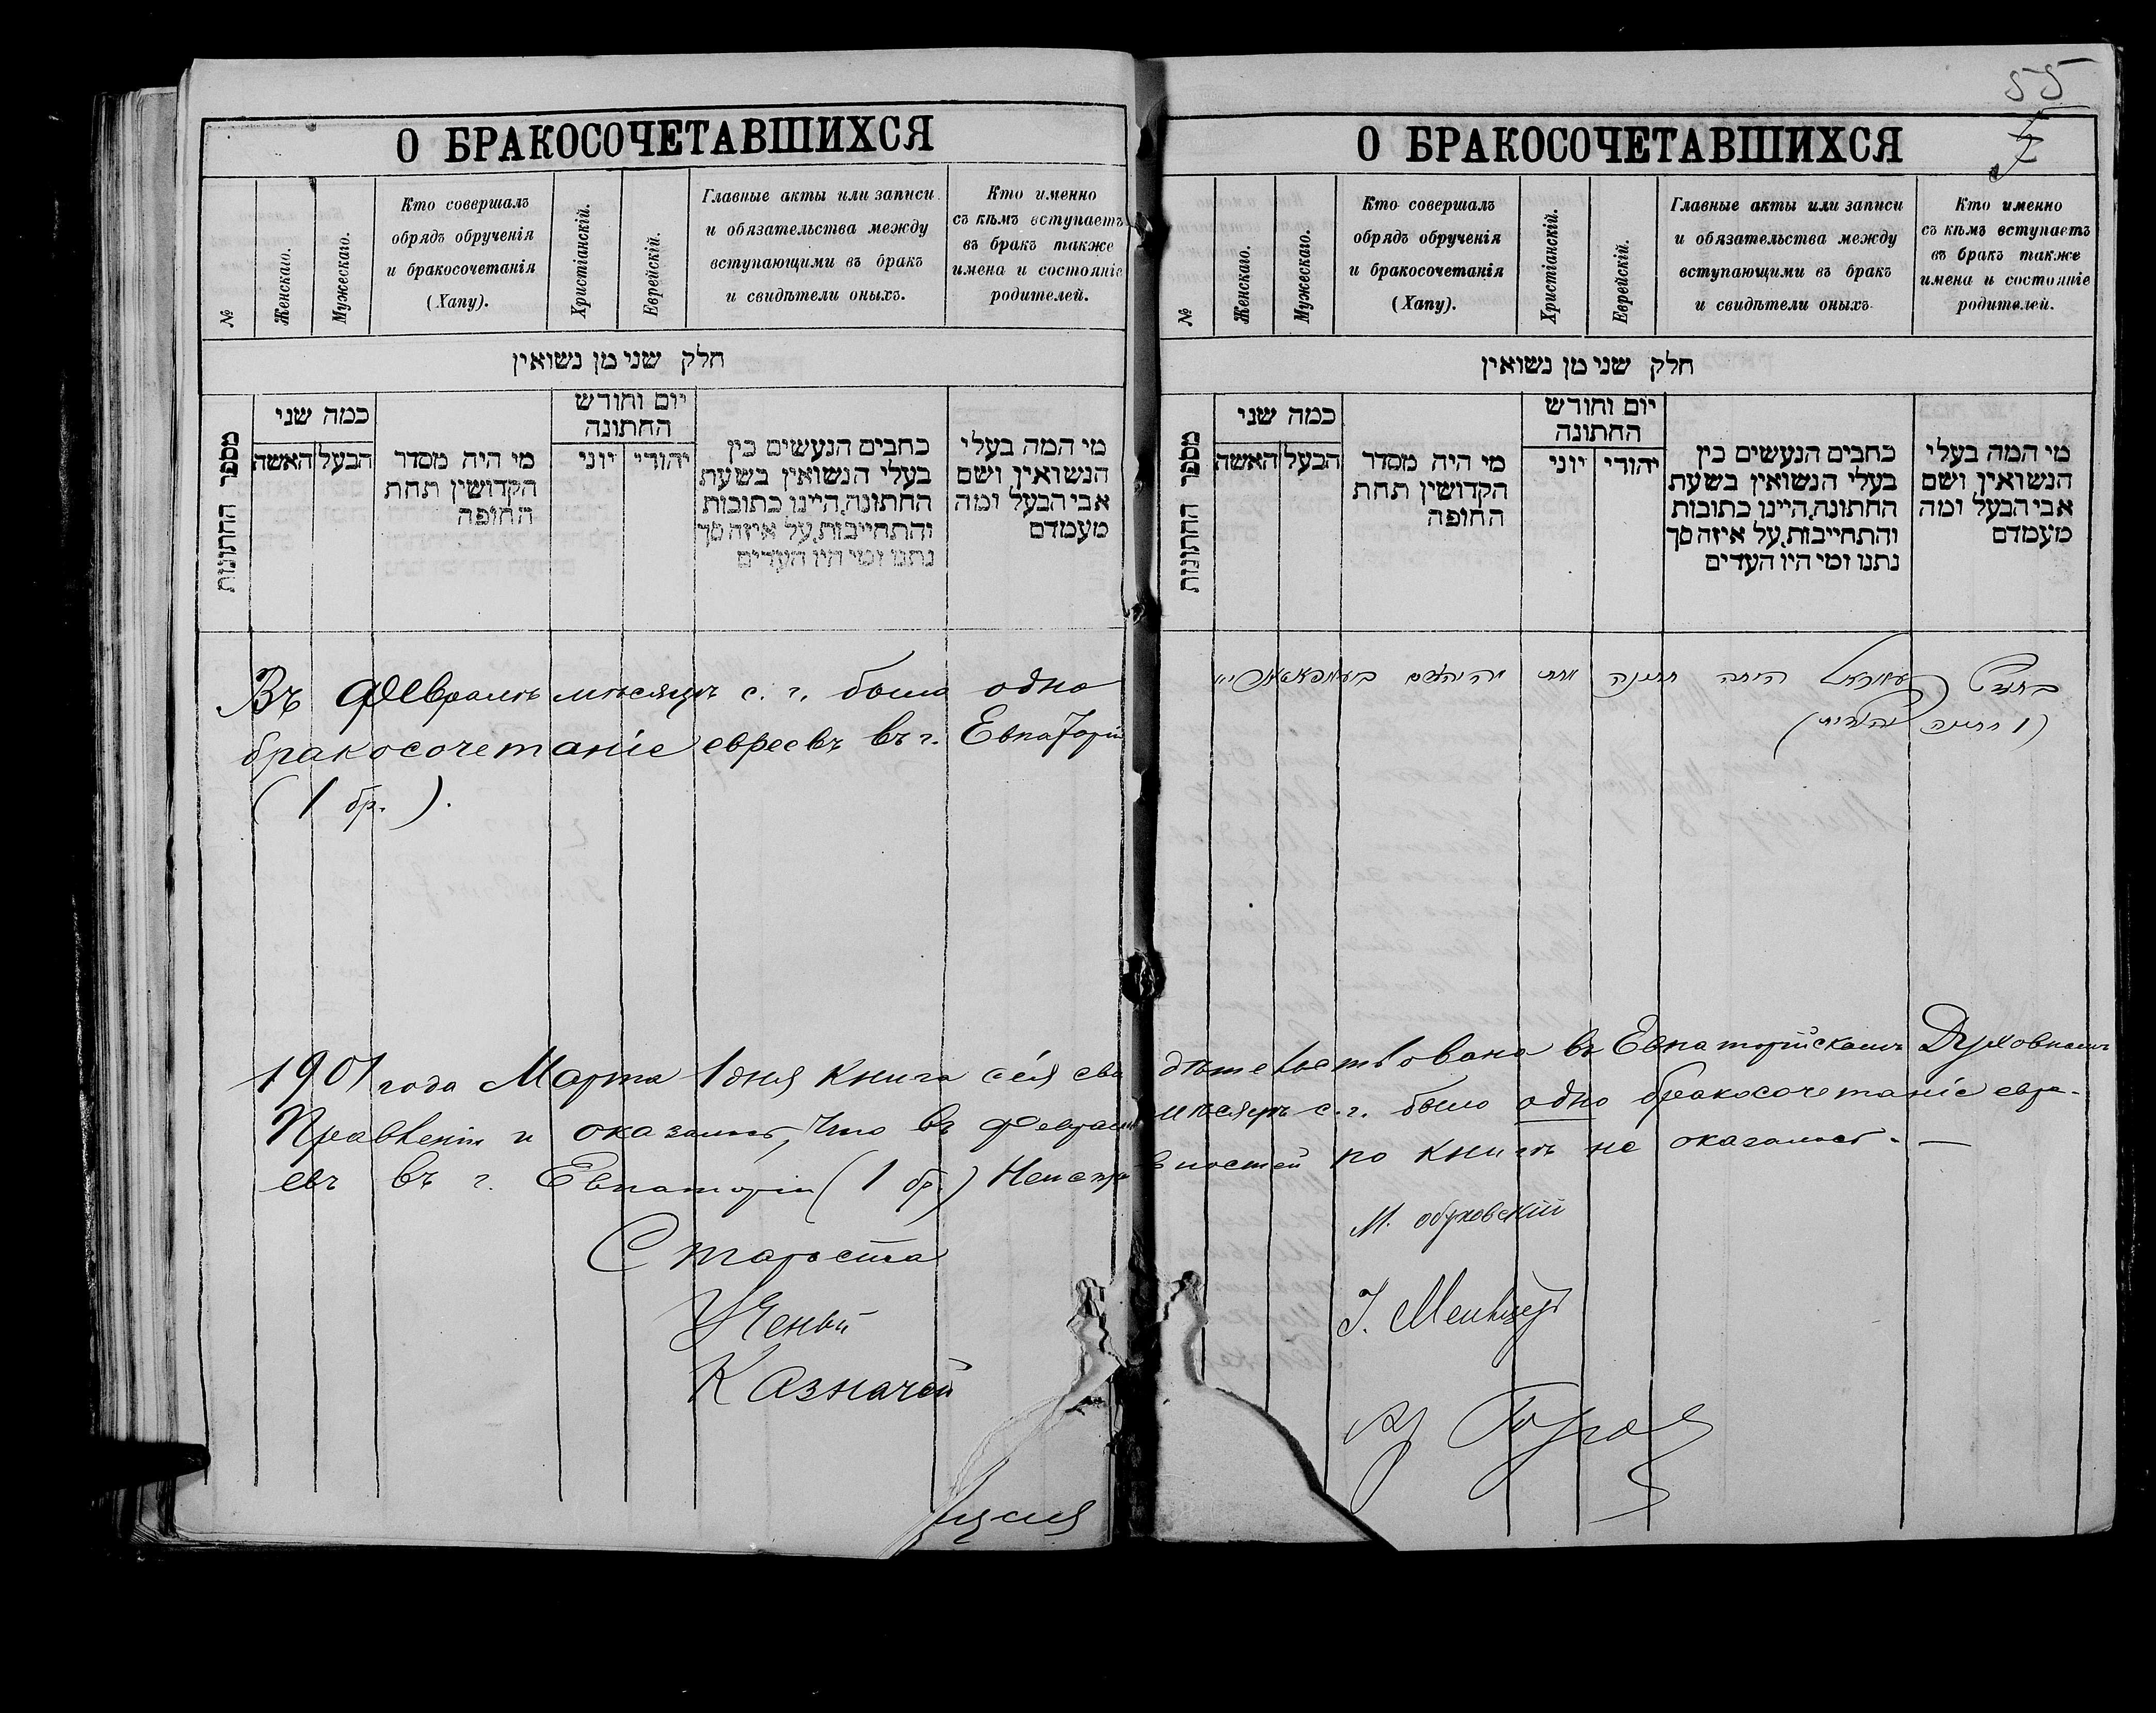 О БРАКОСОЧЕТАВШИХСЯ
№
Женскаго.
Мужескаго.
Кто совершалъ
обрядъ обрученія
и бракосочетанія
(Хапу).
Христіанскій.
Еврейскій.
Главные акты или записи
и обязательства между
вступающими въ бракъ
и свидѣтели оныхъ.
Кто именно
съ кѣмъ вступаетъ
въ бракъ также
имена и состояніе
родителей.
חלק שני מן נשואין
מספר החתונות
כמה שני
האשה
הבעל
מי היה מסדר
הקדושין תחת
החופה
יום וחודש
החתונה
יוני
יהודי
כתבים הנעשים בין
בעלי הנשואין בשעת
החתונה, היינו כתובות
והתחייבות, על איזה סך
נתנו ומי היו העדים
מי המה בעלי
הנשואין ושם
אבי הבעל ומה
מעמדם
Въ Февралѣ мѣсяцѣ с. г. было одно
бракосочетаніе евреевъ въ г. Евпаторіи
(1 бр.).
55
О БРАКОСОЧЕТАВШИХСЯ
№
Женскаго.
Мужескаго.
Кто совершалъ
обрядъ обрученія
и бракосочетанія
(Хапу).
Христіанскій.
Еврейскій.
Главные акты или записи
и обязательства между
вступающими въ бракъ
и свидѣтели оныхъ.
Кто именно
съ кѣмъ вступаетъ
въ бракъ также
имена и состояніе
родителей.
חלק שני מן נשואין
מספר החתונות
כמה שני
האשה
הבעל
מי היה מסדר
הקדושין תחת
החופה
יום וחודש
החתונה
יוני
יהודי
כתבים הנעשים בין
בעלי הנשואין בשעת
החתונה, היינו כתובות
והתחייבות, על איזה סך
נתנו ומי היו העדים
מי המה בעלי
הנשואין ושם
אבי הבעל ומה
מעמדם
היתה חתונה אחת
1901 года Марта 1 дня книга сія свидѣтельствована въ Евпаторійскомъ Духовномъ
Правленіи и оказалось, что въ Февралѣ мѣсяцѣ с. г. было одно бракосочетаніе евре-
евъ въ г. Евпаторіи (1 бр.) Неисправностей по книгѣ не оказалось. —
Староста М. Обуховскій
Ученый І.
Казначей